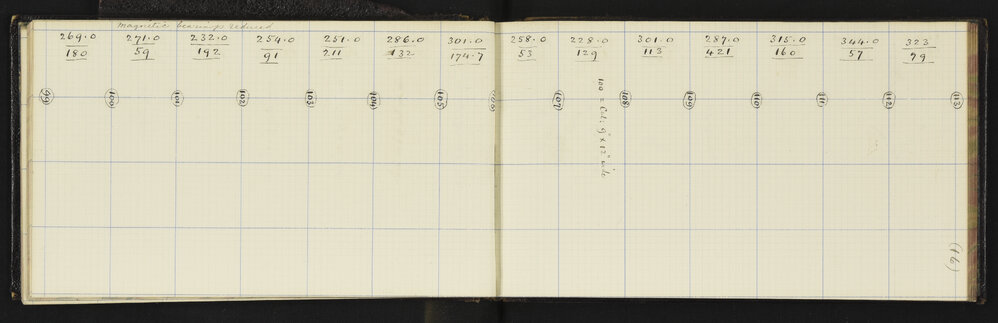 magnetic bearings reduced
269.0 271.0 232.0 254.0 251.0 286.0 301.0 258.0 228.0 301.0 287.0 315.0 344.0 323
180 59 192 91 211 132 174.7 53 129 113 421 160 57 99
99 100 101 102 103 104 105 106 107 108 109 110 111 112 113
100 = Cul: 9" x 12" wide
(16)